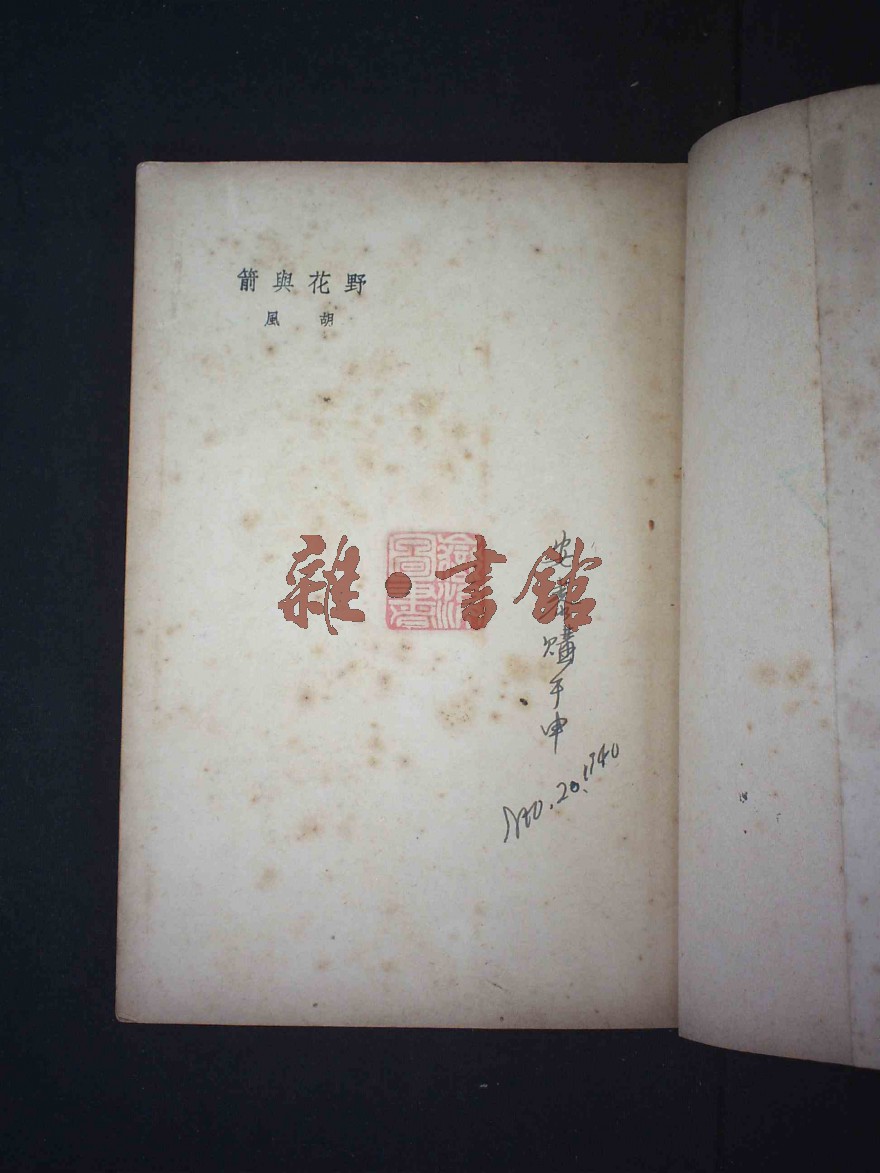 野花與箭
胡風
雜·書館
安 購于申
20. 1940